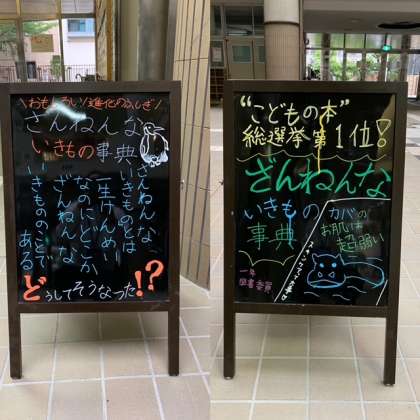 \おもしろい!進化のふしぎ/
ざんねんな
いきもの事典
ざんねんな
いきものとは
一生けんめい
なのにどこか
ざんねんな
いきもののことで
ある
どうしてそうなった!?
"こどもの本"
総選挙第1位!
ざんねんな
いきもの
事典
カバの
お肌は
超弱い
一年
図書委員